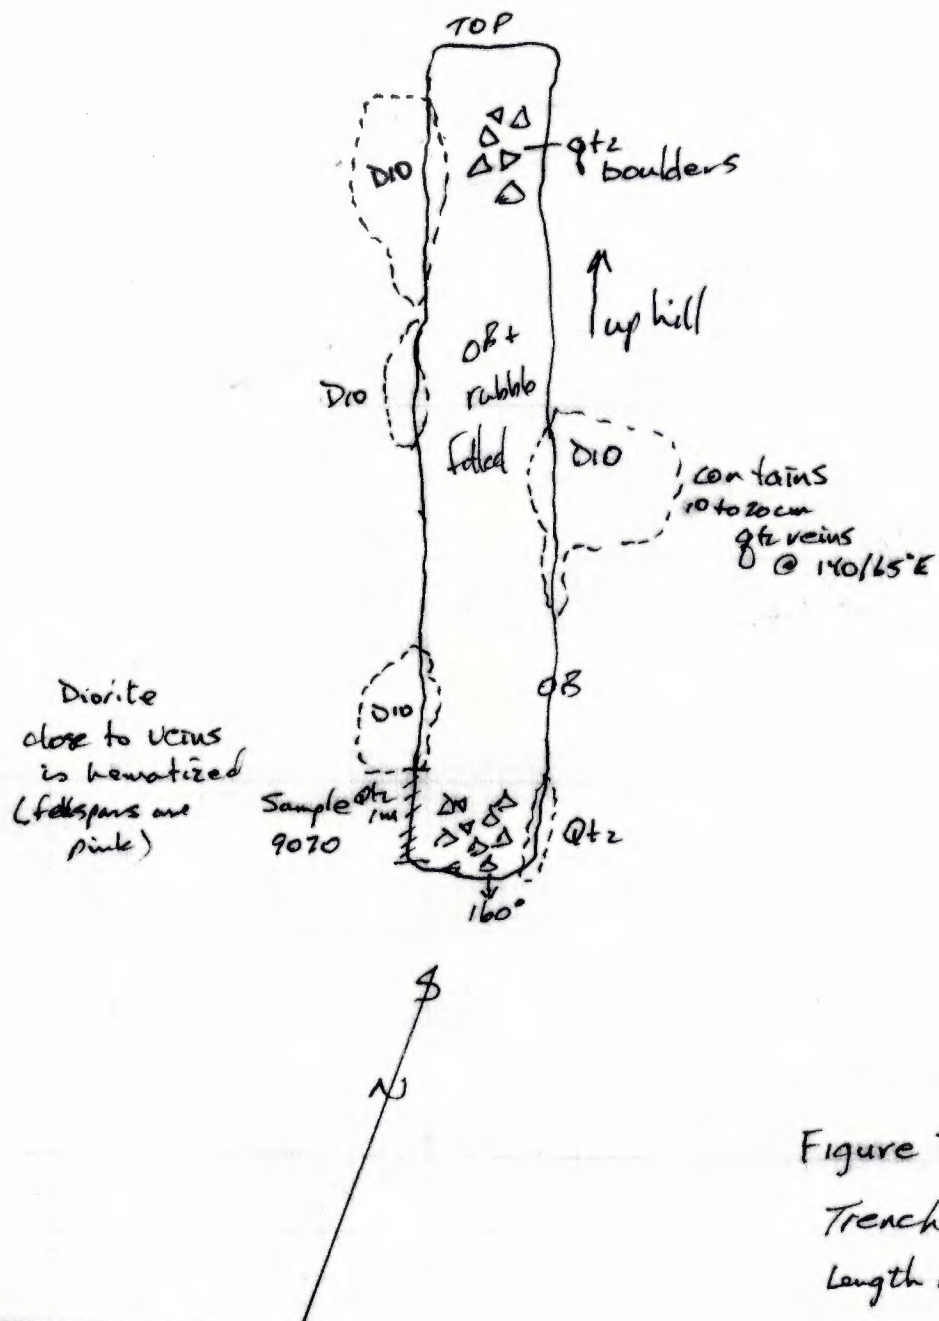 TOP
DIO
qtz
boulders
up hill
OB +
rubble
filled
DIO
DIO
contains
10 to 20cm
qtz veins
@ 140/65°E
OB
Diorite
close to veins
is hematized
(feldspars are
pink)
DIO
Sample
9070
Qtz
1m
Qtz
160°
N
Figure
Trench
Length